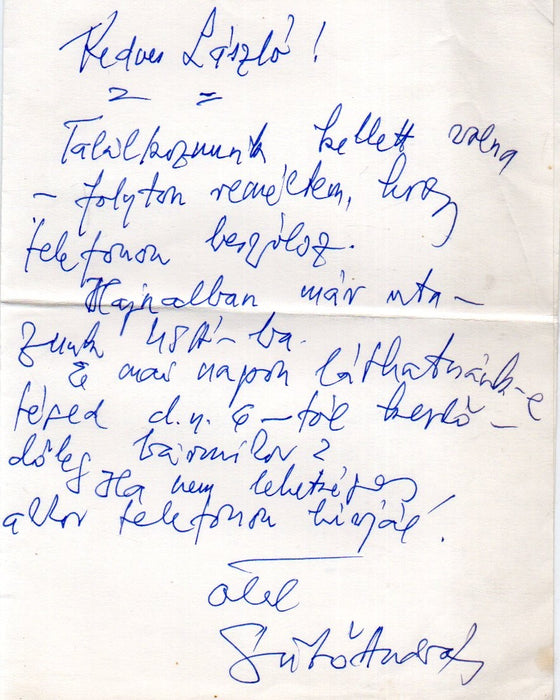 Kedves László!
Találkoznunk kellett volna
– folyton reméltem, hogy
telefonon beszólsz.
Hajnalban már uta-
zunk USA-ba.
E mai napon láthatnánk-e
téged d.u. 6-tól kezdő-
dőleg bármikor?
Ha nem lehetséges
akkor telefonon hívjál!
ölel
Sütő András